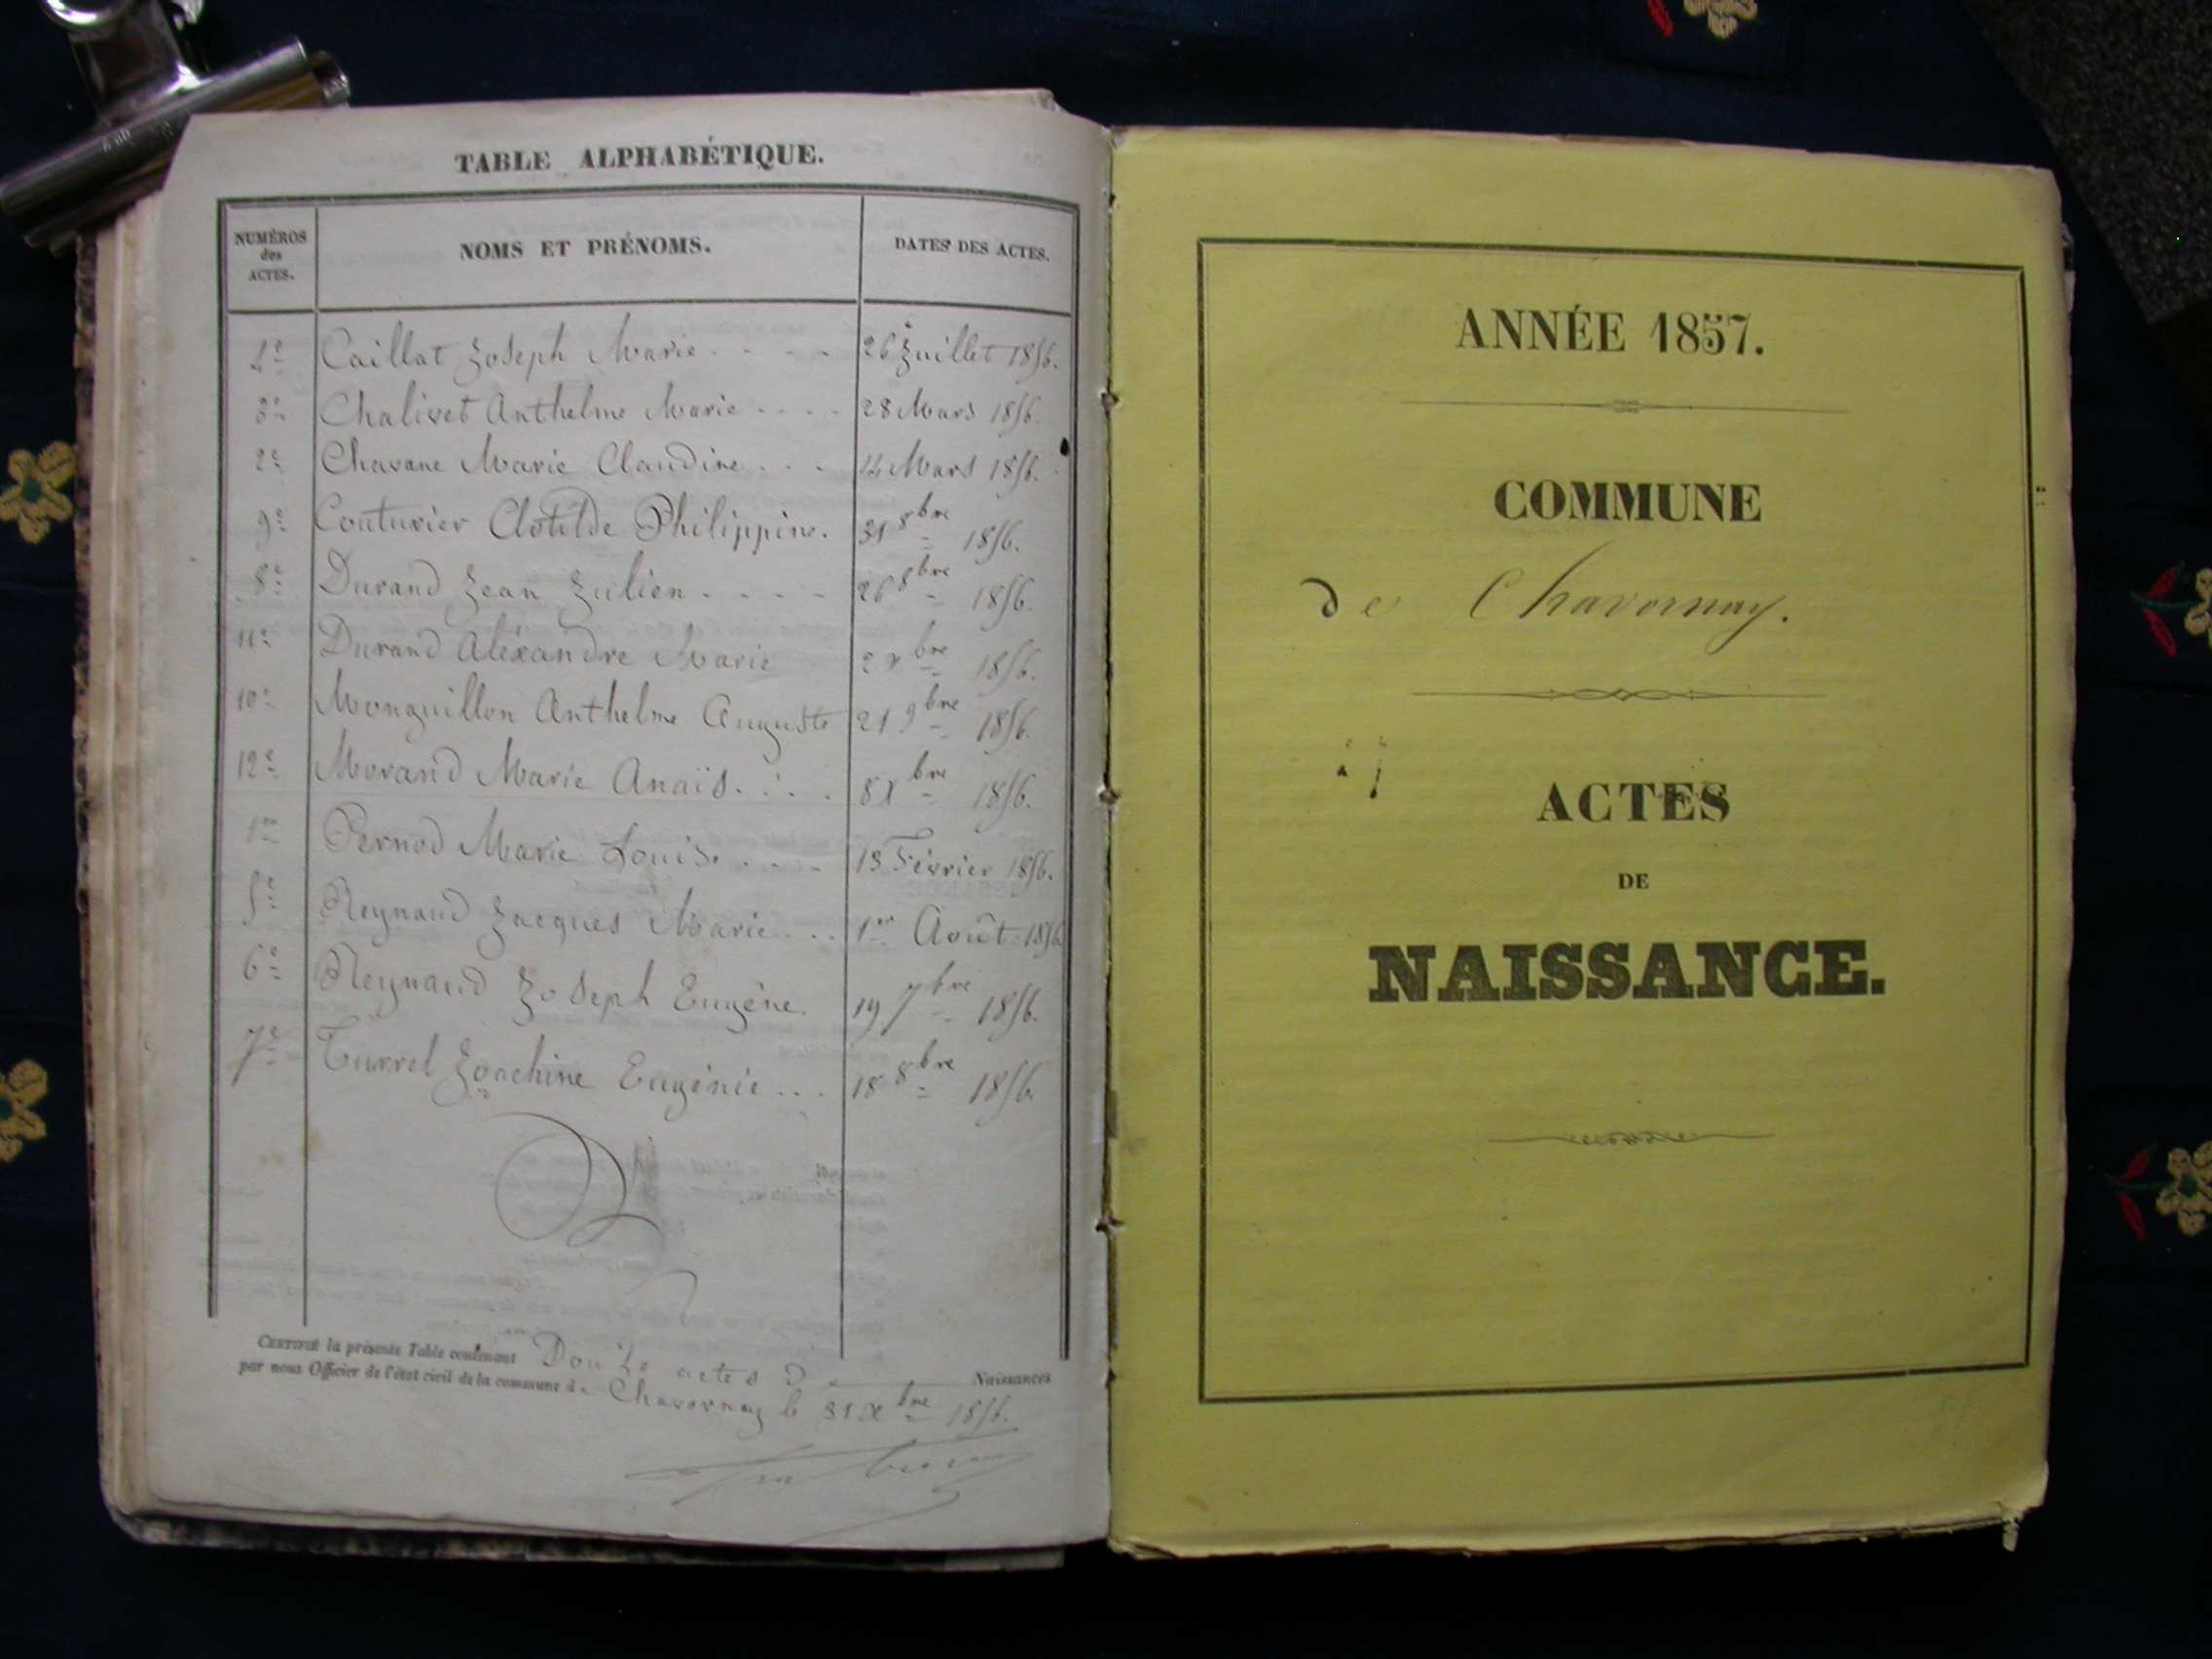 TABLE ALPHABÉTIQUE.
NUMÉROS des ACTES.
NOMS ET PRÉNOMS.
DATES DES ACTES.
4e Caillat Joseph Marie . . . . 26 Juillet 1856.
3e Chalivet Anthelme Marie . . . . 28 Mars 1856.
2e Chavane Marie Claudine . . . 14 Mars 1856.
9e Couturier Clotilde Philippine. 31 8bre 1856.
8e Durand Jean Julien . . . . 26 8bre 1856.
11e Durand Aléxandre Marie 2 Xbre 1856.
10e Monguillon Anthelme Auguste 21 9bre 1856.
12e Morand Marie Anaïs. . . . 8 Xbre 1856.
1er Pernod Marie Louise . . . . 13 Février 1856.
5e Reynaud Jacques Marie . . . 1er Août 1856
6e Reynaud Joseph Eugène. 19 7bre 1856.
7e Turrel Joachine Eugénie . . . 18 8bre 1856.
CERTIFIÉ la présente Table contenant Douze actes de Naissances
par nous Officier de l'état civil de la commune de Chavornay le 31 Xbre 1856.
ANNÉE 1857.
COMMUNE
de Chavornay.
ACTES
DE
NAISSANCE.